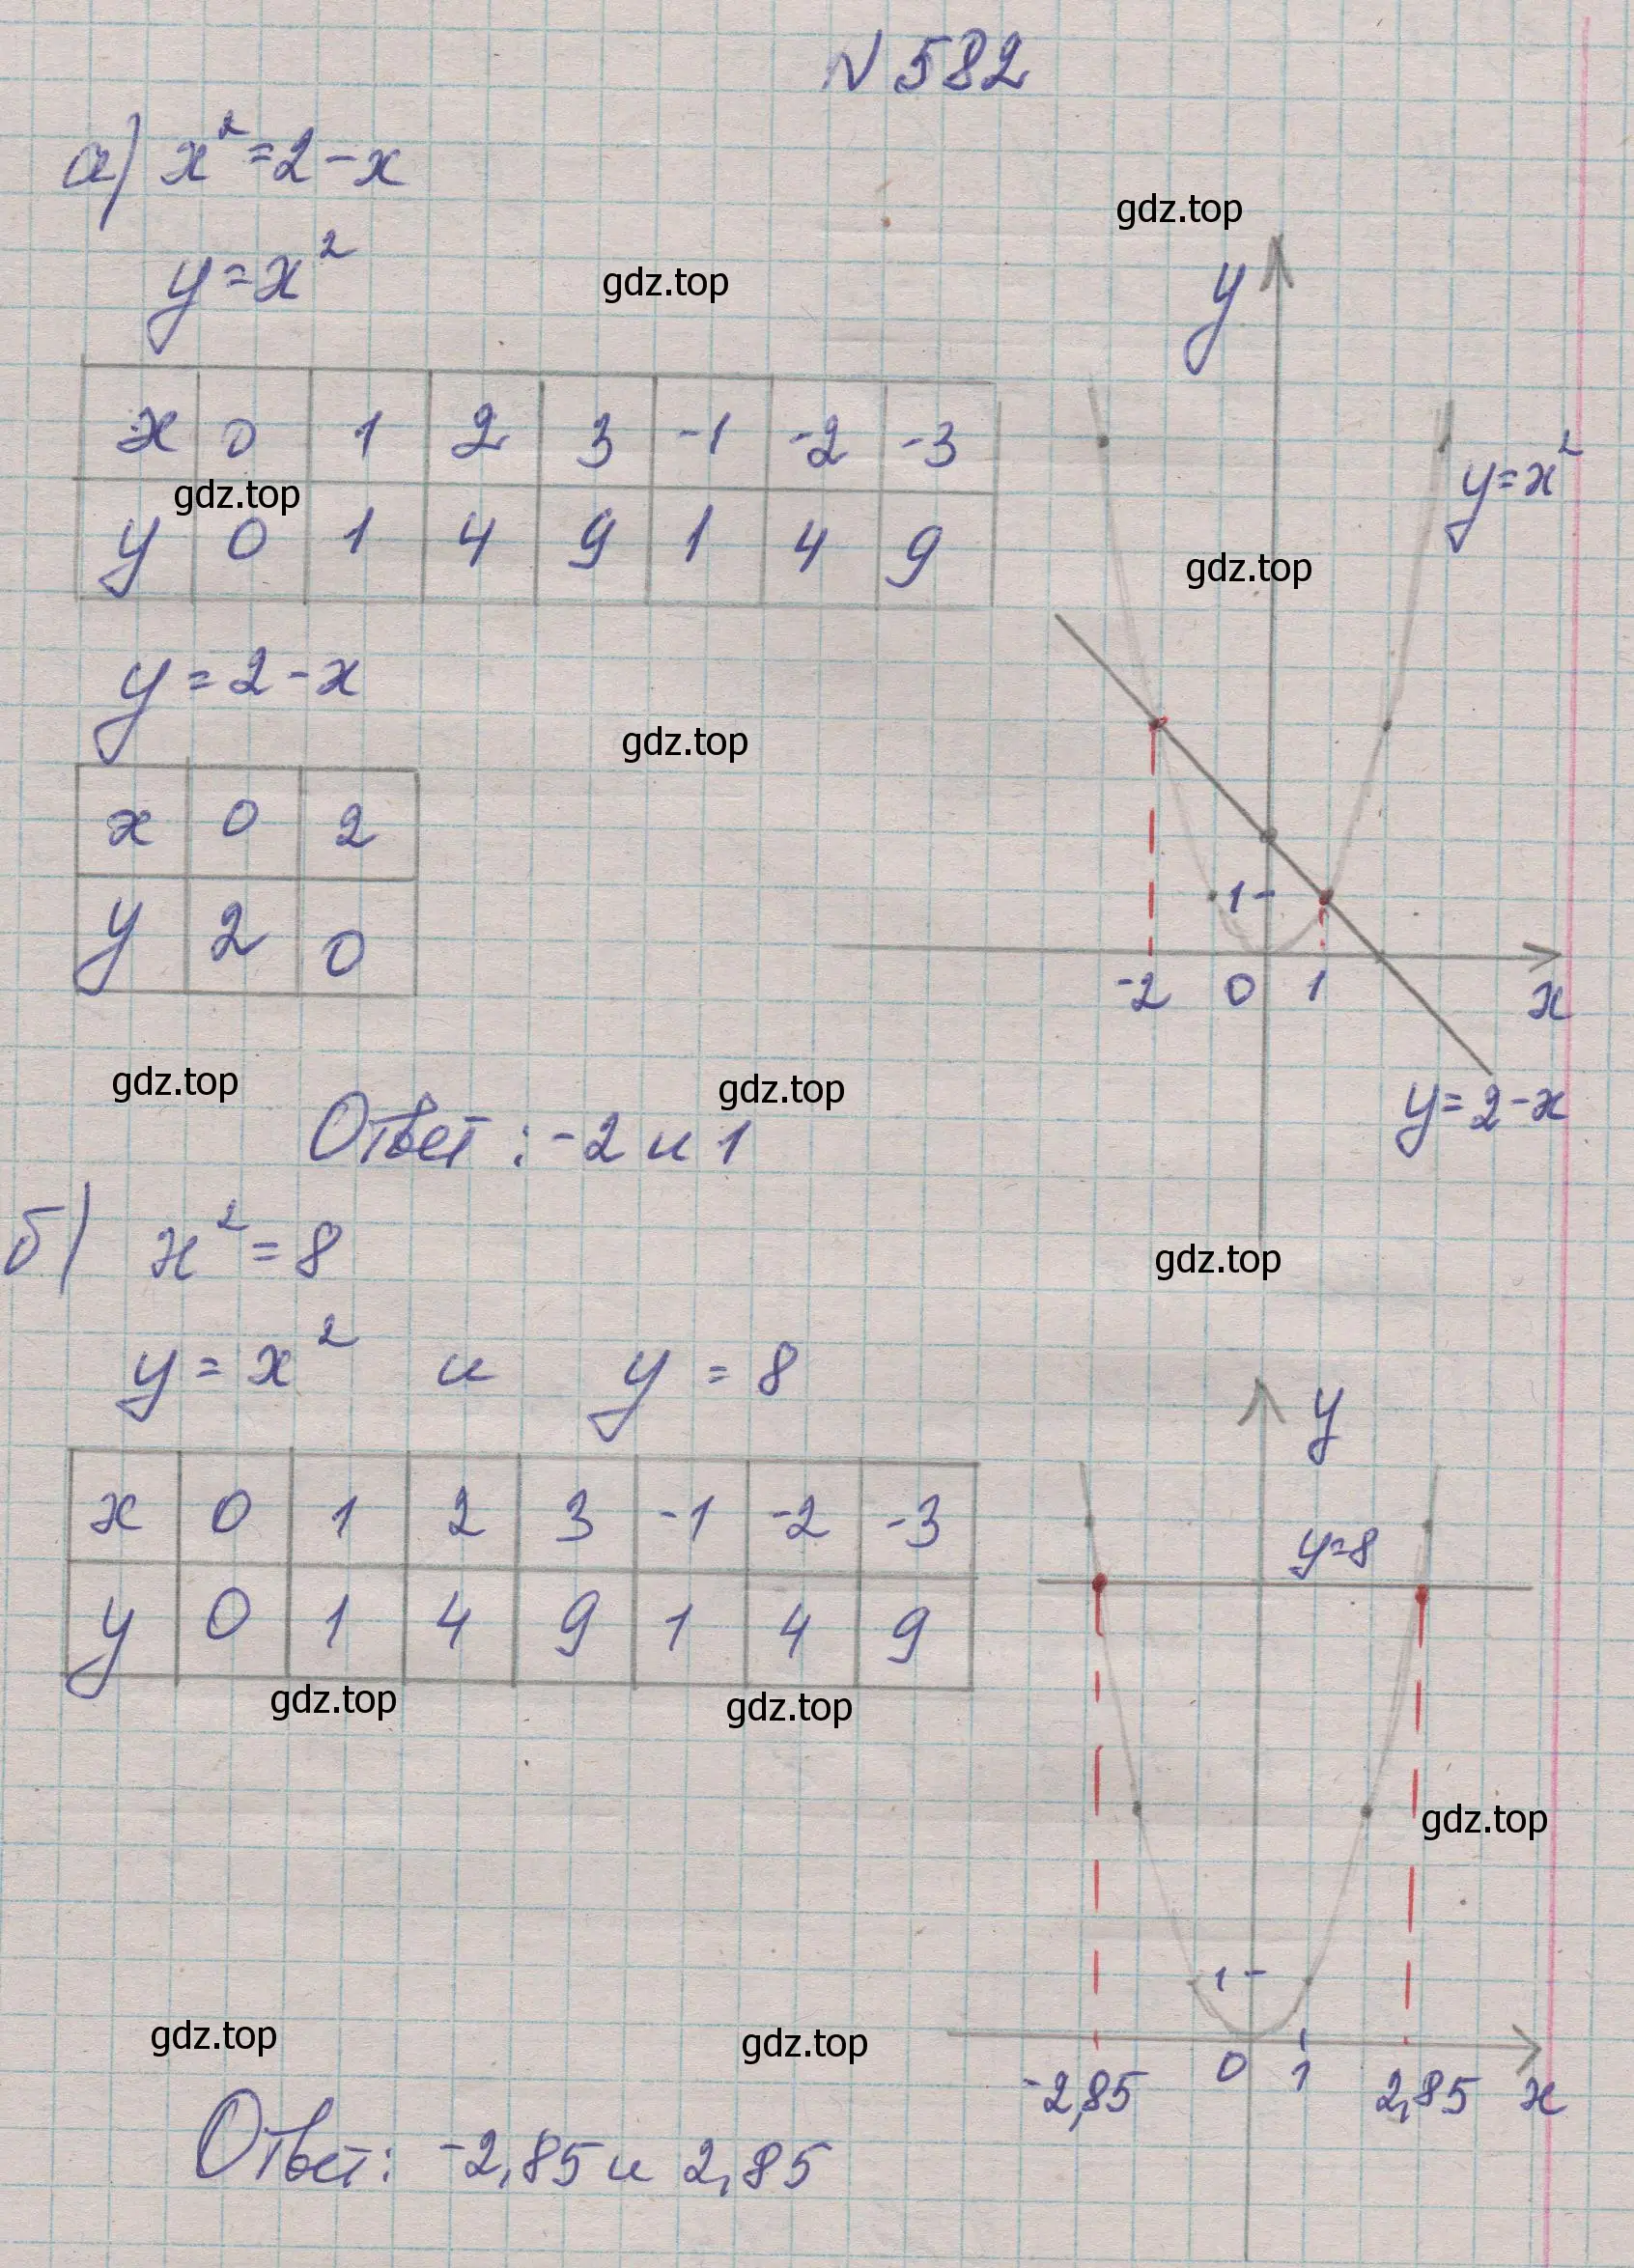 N 582
а) x² = 2 - x
gdz.top
y = x²
gdz.top
y
x 0 1 2 3 -1 -2 -3
y = x²
gdz.top
y 0 1 4 9 1 4 9
gdz.top
y = 2 - x
gdz.top
x 0 2
1
y 2 0
-2 0 1 x
gdz.top
gdz.top
y = 2 - x
Ответ: -2 и 1
б) x² = 8
gdz.top
y = x² и y = 8
y
x 0 1 2 3 -1 -2 -3
y=8
y 0 1 4 9 1 4 9
gdz.top
gdz.top
gdz.top
1
gdz.top
gdz.top
-2,85 0 1 2,85 x
Ответ: -2,85 и 2,85